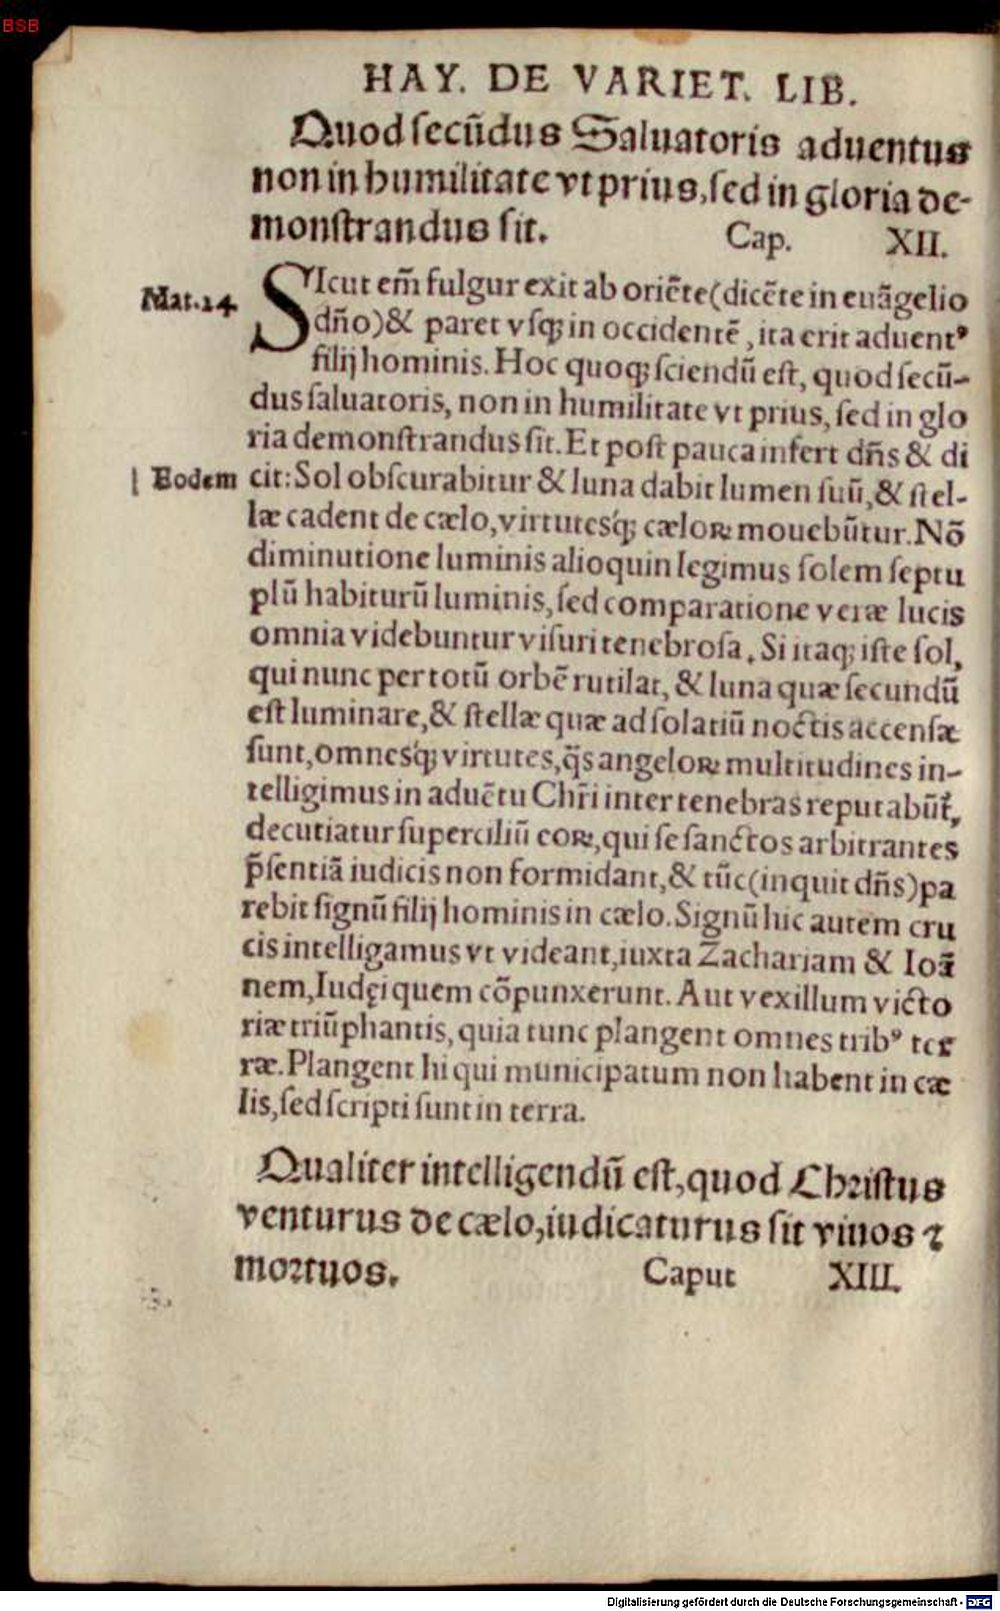 BSB
HAY. DE VARIET. LIB.
Quod secũdus Saluatoris aduentus
non in humilitate vt prius, sed in gloria de-
monstrandus sit. Cap. XII.
Mat.24
SIcut em̃ fulgur exit ab oriẽte (dicẽte in euãgelio
dño) & paret vsqꝫ in occidentẽ, ita erit aduentꝰ
filij hominis. Hoc quoqꝫ sciendũ est, quod secũ-
dus saluatoris, non in humilitate vt prius, sed in glo
ria demonstrandus sit. Et post pauca infert dñs & di
| Eodem
cit: Sol obscurabitur & luna dabit lumen suũ, & stel-
læ cadent de cælo, virtutesqꝫ cæloꝝ mouebũtur. Nõ
diminutione luminis alioquin legimus solem septu
plũ habiturũ luminis, sed comparatione veræ lucis
omnia videbuntur visuri tenebrosa. Si itaqꝫ iste sol,
qui nunc per totũ orbẽ rutilat, & luna quæ secundũ
est luminare, & stellæ quæ ad solatiũ noctis accensæ
sunt, omnesqꝫ virtutes, q̃s angeloꝝ multitudines in-
telligimus in aduẽtu Chr̃i inter tenebras reputabũt᷑,
decutiatur superciliũ eoꝝ, qui se sanctos arbitrantes
p̃sentiã iudicis non formidant, & tũc (inquit dñs) pa
rebit signũ filij hominis in cælo. Signũ hic autem cru
cis intelligamus vt videant, iuxta Zachariam & Ioã
nem, Iudęi quem cõpunxerunt. Aut vexillum victo
riæ triũphantis, quia tunc plangent omnes tribꝰ ter
ræ. Plangent hi qui municipatum non habent in cæ
lis, sed scripti sunt in terra.
Qualiter intelligendũ est, quod Christus
venturus de cælo, iudicaturus sit viuos ⁊
mortuos. Caput XIII.
Digitalisierung gefördert durch die Deutsche Forschungsgemeinschaft - DFG